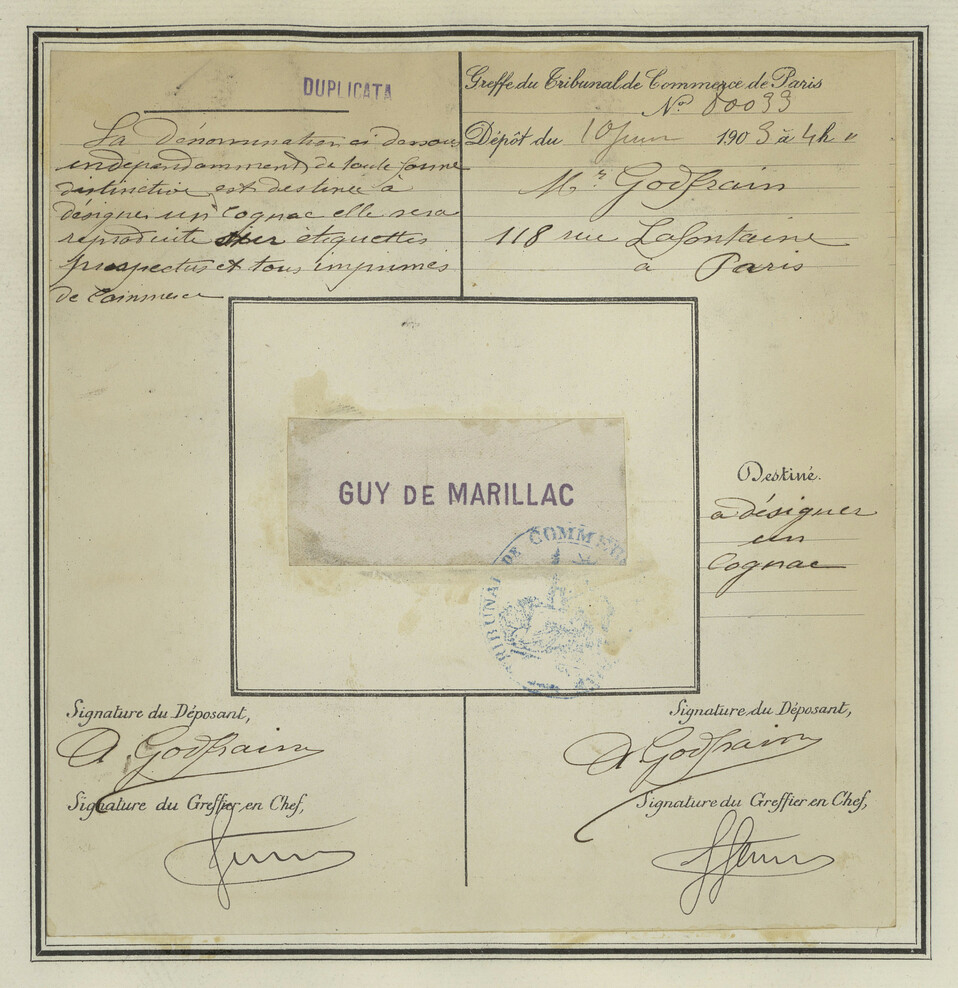 DUPLICATA
La dénomination ci dessous
indépendamment de toute forme
distinctive est destinée à
désigner un Cognac elle sera
reproduite sur étiquettes
prospectus et tous imprimés
de Commerce
Greffe du Tribunal de Commerce de Paris
No 80033
Dépôt du 10 Juin 1903 à 4h "
Mr Godfrain
118 rue Lafontaine
à Paris
GUY DE MARILLAC
TRIBUNAL DE COMMER
Destiné
a désigner
un
Cognac
Signature du Déposant,
A Godfrain
Signature du Greffier en Chef,
Signature du Déposant,
A Godfrain
Signature du Greffier en Chef,